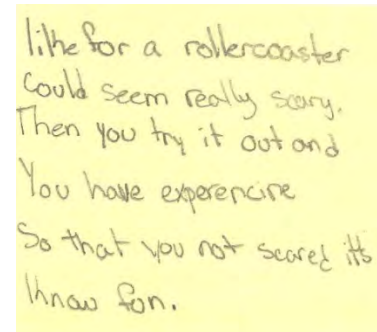 like for a rollercoaster
Could seem really scary.
Then you try it out and
You have experencire
So that you not scared it's
know fun.